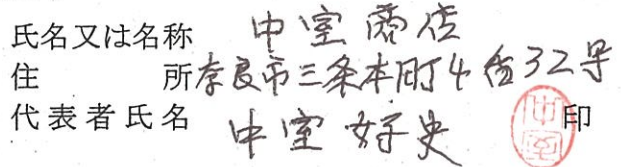 氏名又は名称 中室商店
住所 奈良市三条本町4番32号
代表者氏名 中室好史 印
中室